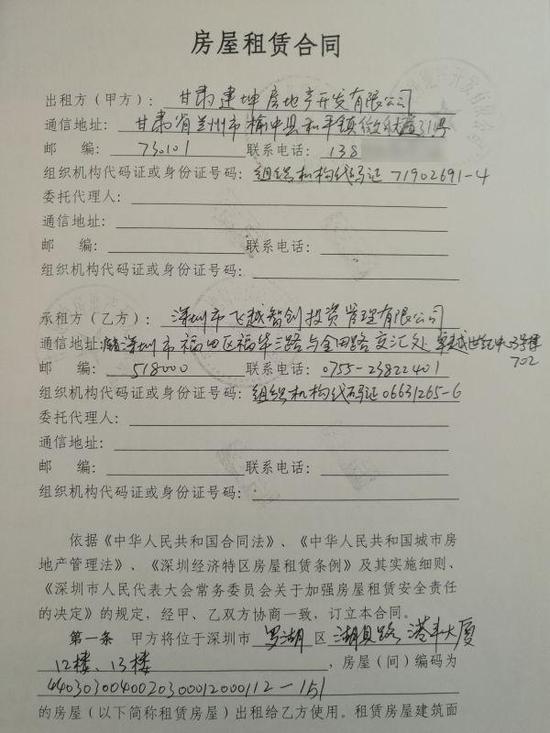 房屋租赁合同
出租方（甲方）：甘肃建坤房地产开发有限公司
通信地址：甘肃省兰州市榆中县和平镇徐家庄31号
邮 编：730101 联系电话：138
组织机构代码证或身份证号码：组织机构代码证71902691-4
委托代理人：
通信地址：
邮 编： 联系电话：
组织机构代码证或身份证号码：
承租方（乙方）：深圳市飞越智创投资管理有限公司
通信地址：深圳市福田区福华三路与金田路交汇处卓越世纪中心3号楼
702
邮 编：518000 联系电话：0755-23822401
组织机构代码证或身份证号码：组织机构代码证06631265-6
委托代理人：
通信地址：
邮 编： 联系电话：
组织机构代码证或身份证号码：
依据《中华人民共和国合同法》、《中华人民共和国城市房
地产管理法》、《深圳经济特区房屋租赁条例》及其实施细则、
《深圳市人民代表大会常务委员会关于加强房屋租赁安全责任
的决定》的规定，经甲、乙双方协商一致，订立本合同。
第一条 甲方将位于深圳市罗湖区湖贝路港丰大厦
12楼、13楼，房屋（间）编码为
4403030040020300012000112-151
的房屋（以下简称租赁房屋）出租给乙方使用。租赁房屋建筑面